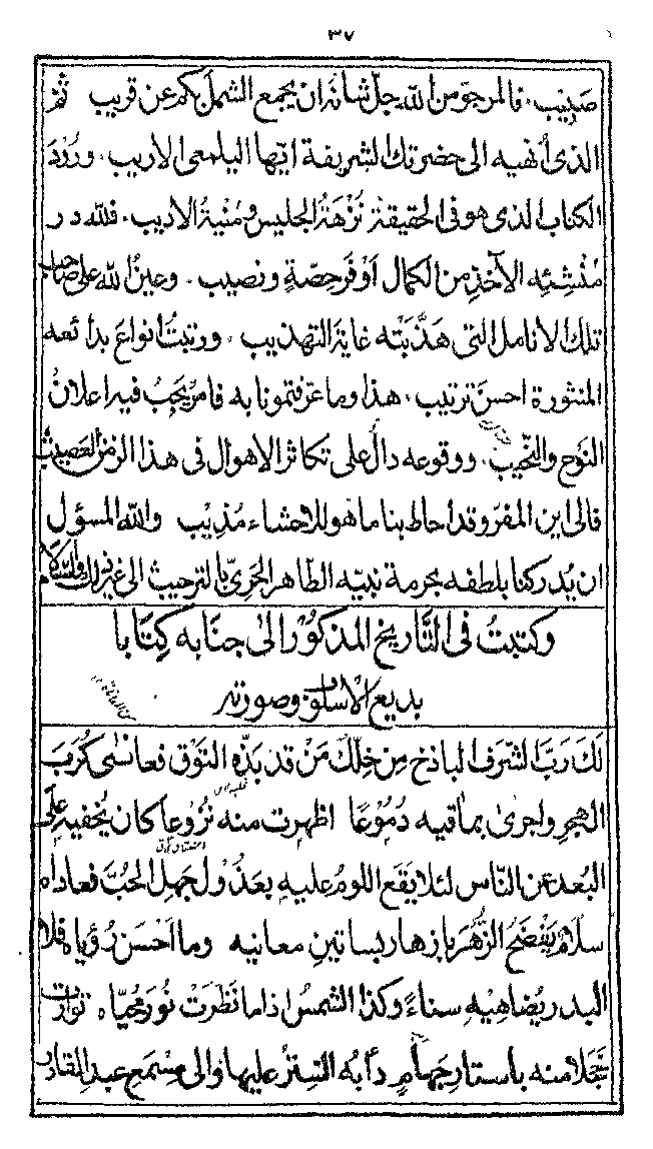 ٣٧
صبيب، فالمرجو من الله جلّ شانه ان يجمع الشمل بكم عن قريب ثم
الذى اُنهيه الى حضرتك الشريفة ايّها اليلمعى الاريب، ورُوْدَ
الكتاب الذى هو فى الحقيقة نُزْهَةُ الجليس ومُنْيةُ الاديب، فلله در
مُنْشِئِه الآخذِ من الكمال اَوْفَرَ حِصّةٍ ونصيب، وعينُ الله على صاحب
تلك الانامل التى هَذَّبَتْه غاية التهذيب، ورتبتْ انواعَ بدائعه
المنثورة احسنَ ترتيب، هذا وما عرّفتمونا به فامرٌ يَجِبُ فيه اعلانُ
النَوْحِ والنَّحِيب، ووقوعه دالٌ على تكاثر الاهوال فى هذا الزمن العصيب
فالى اين المفرّ وقد احاط بنا ما هو للاحشاء مُذِيْب والله المسؤل
ان يُدركنا بلطفه بحرمة نبيّه الطّاهر الحَرِىّ بالترحيب الى غير ذلك والسّلام
وكتبتُ فى التَّاريخ المذكُوْر الىٰ جنَابه كِتَابا
بديع الاسلوب وصورته
لَكَ رَبَّ الشَّرَفِ الباذخِ مِن خِلِّكَ مَنْ قد بَذَّه التَوْق فعانىٰ كُرَبَ
الهجرِ واجرىٰ بمآقيه دُمُوْعًا اظهرت منه نُزُوعا كان يُخفيهِ علَى
البُعدِ عن النّاس لئلا يقَع اللومُ عليهِ بعَذُوْلٍ جهِل الحُبَّ فعاداه
سلامٌ يَفْضَحُ الزَّهْرَ بازهارِ بساتينِ معانيه وما احْسَن رُؤياه فلا
البدر يُضاهِيْهِ سناءً وكذا الشمسُ اذا ما نَظَرَتْ نُورَ مُحيّاه توارت
خجلا منه باستارِ جهامٍ دأبه التسترُ عليها والى مِسْمَعِ عبد القادر